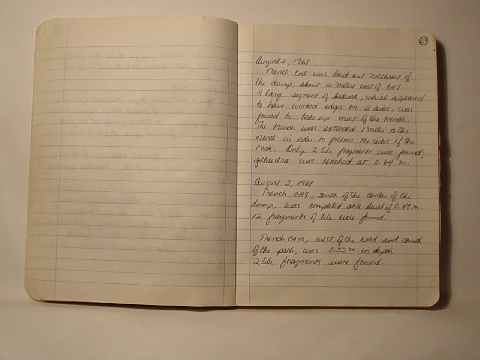 23
August 2, 1968
Trench CA8 was laid out northeast of
the dump, about 10 meters east of CA7.
A large segment of bedrock, which appeared
to have worked edges on 2 sides, was
found to take up most of the trench.
The trench was extended 1 meter to the
north in order to follow the sides of the
rock. Only 2 tile fragments were found;
was reached at 0.64 m.
August 2, 1968
Trench CA9, south of the center of the
dump, was completed at a level of 0.42 m.
12 fragments of tile were found.
Trench CA10, west of the road and south
of the path, was 0.22 m in depth
2 tile fragments were found.